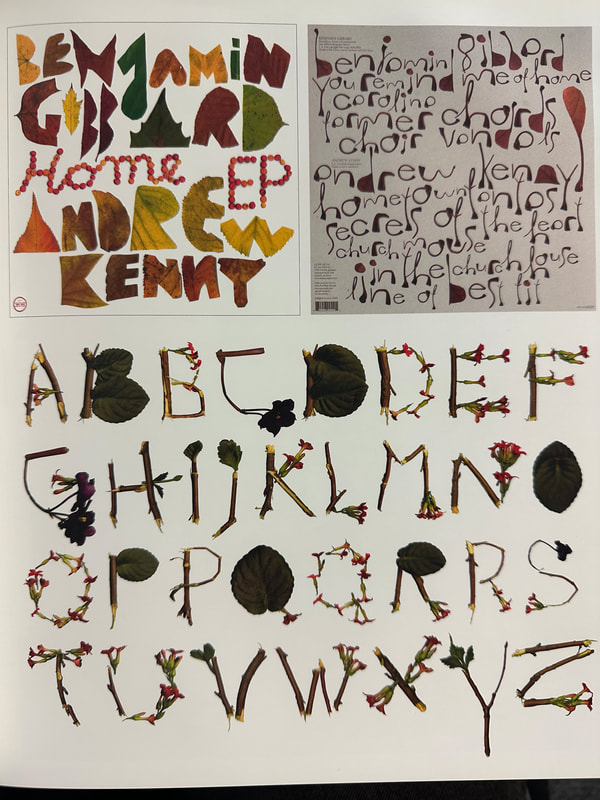 BENJAMIN
GIBBARD
Home EP
ANDREW
KENNY
BENJAMIN GIBBARD
benjamin gibbard
you remind me of home
carolina
farmer chords
choir vandals
ANDREW KENNY
andrew kenny
hometown fantasy
secrets of the heart
church mouse
in the church house
line of best fit
A B B C D D E F
G H I J K L M N O
O P P Q Q R R S
T U V W X Y Z